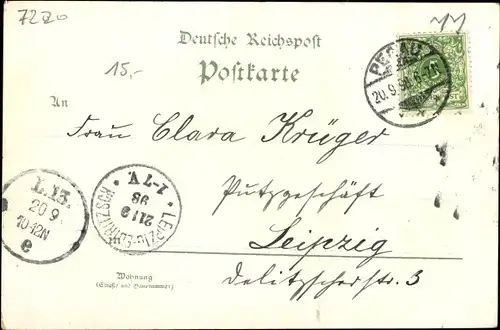 7220
15.-
Deutsche Reichspost
Postkarte
PEGAU
20.9.98. 6-7N
An
Frau Clara Krüger
Putzgeschäft
Leipzig
Delitzscherstr. 3
L.13.
20 9
10-12N
e
LEIPZIG-EUTRITZSCH
21 9
98
7-7¾V.
Wohnung
(Straße und Hausnummer)